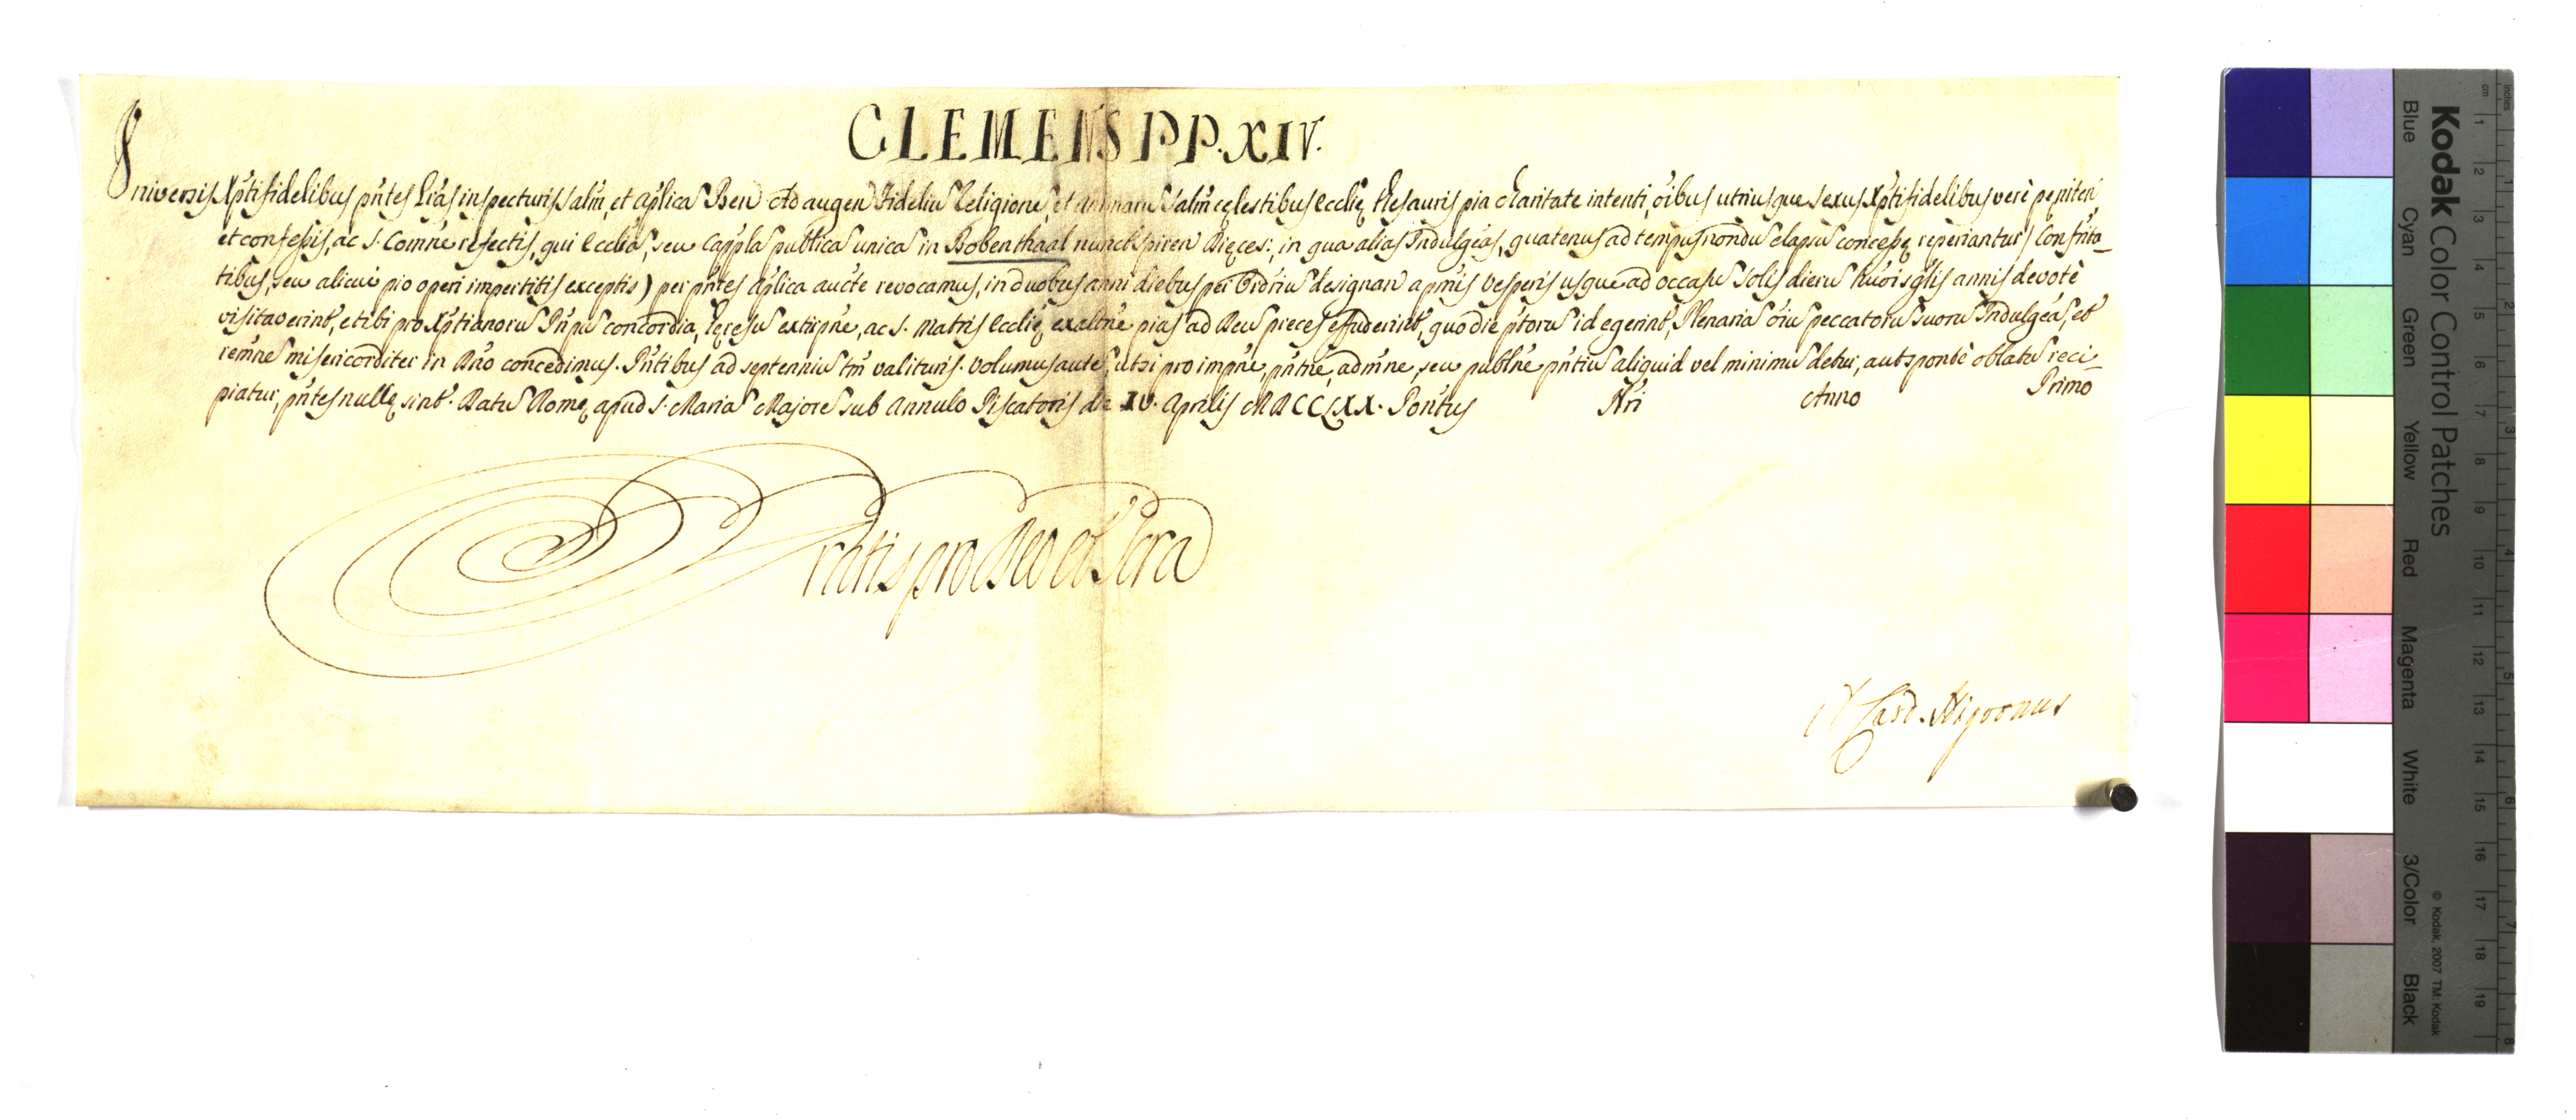 CLEMENS PP. XIV.
Universis Xpti fidelibus pntes Lras inspecturis salm, et aplica Ben Ad augen Fideliu Religione, et animaru salm cęlestibus Ecclię thesauris pia charitate intenti, oibus utriusque sexus Xpti fidelibus verè pęniten
et confessis, ac S. Comne refectis, qui Ecclia, seu Cappla publica unica in Bobenthaal nunc Spiren Dięces:, in qua alias Indulgeas, quatenus ad tempus nondu elapsu concessę reperiantur / Confrita-
tibus, seu alicui pio operi impertitis exceptis ) per pntes aplica aucte revocamus, in duobus anni diebus per Ordriu designan a pmis vesperis usque ad occasu solis dieru huoi sglis annis devotè
visitaverint, et ibi pro Xptianoru Pnpu concordia, hęresu extirpne, ac S. Matris Ecclię exaltne pias ad Deu preces effuderint, quo die ptoru id egerint, Plenaria oiu peccatoru suoru Indulgea, et
remne misericorditer in Dno concedimus. Pntibus ad septenniu tm valituris. Volumus aute, ut si pro impne, pntne, admne, seu publne pntiu aliquid vel minimu detur, aut sponte oblatu reci-
piatur, pntes nullę sint. Datu Romę apud S. Maria Majore sub Annulo Piscatoris die XV. Aprilis MDCCLXX. Pontus Nri Anno Primo
Gratis pro Deo et Scra
Card. Nigronus
Kodak Color Control Patches
Blue Cyan Green Yellow Red Magenta White 3/Color Black
© Kodak, 2007 TM: Kodak
inches 1 2 3 4 5 6 7 8
cm 1 2 3 4 5 6 7 8 9 10 11 12 13 14 15 16 17 18 19